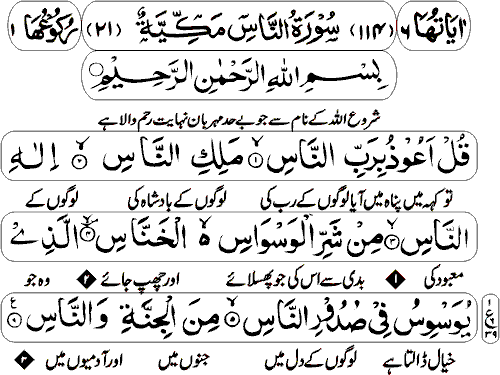 اٰیَاتُهَا ٦ (۱۱۴) سُوْرَةُ النَّاسِ مَكِّیَّةٌ (۲۱) رُكُوْعُهَا ۱
بِسْمِ اللّٰهِ الرَّحْمٰنِ الرَّحِیْمِ
شروع اللہ کے نام سے جو بے حد مہربان نہایت رحم والا ہے
قُلْ اَعُوْذُ بِرَبِّ النَّاسِ ۙ۱ مَلِكِ النَّاسِ ۙ۲ اِلٰهِ
تو کہہ میں پناہ میں آیا لوگوں کے رب کی لوگوں کے بادشاہ کی لوگوں کے
النَّاسِ ۙ۳ مِنْ شَرِّ الْوَسْوَاسِ ۙ۬ الْخَنَّاسِ ۪ۙ۴ الَّذِیْ
معبود کی ۱ بدی سے اس کی جو پھسلائے اور چھپ جائے ۲ وہ جو
یُوَسْوِسُ فِیْ صُدُوْرِ النَّاسِ ۙ۵ مِنَ الْجِنَّةِ وَ النَّاسِ ۠۶
خیال ڈالتا ہے لوگوں کے دل میں جنوں میں اور آدمیوں میں ۳
۱ ع ۶ ۳۹